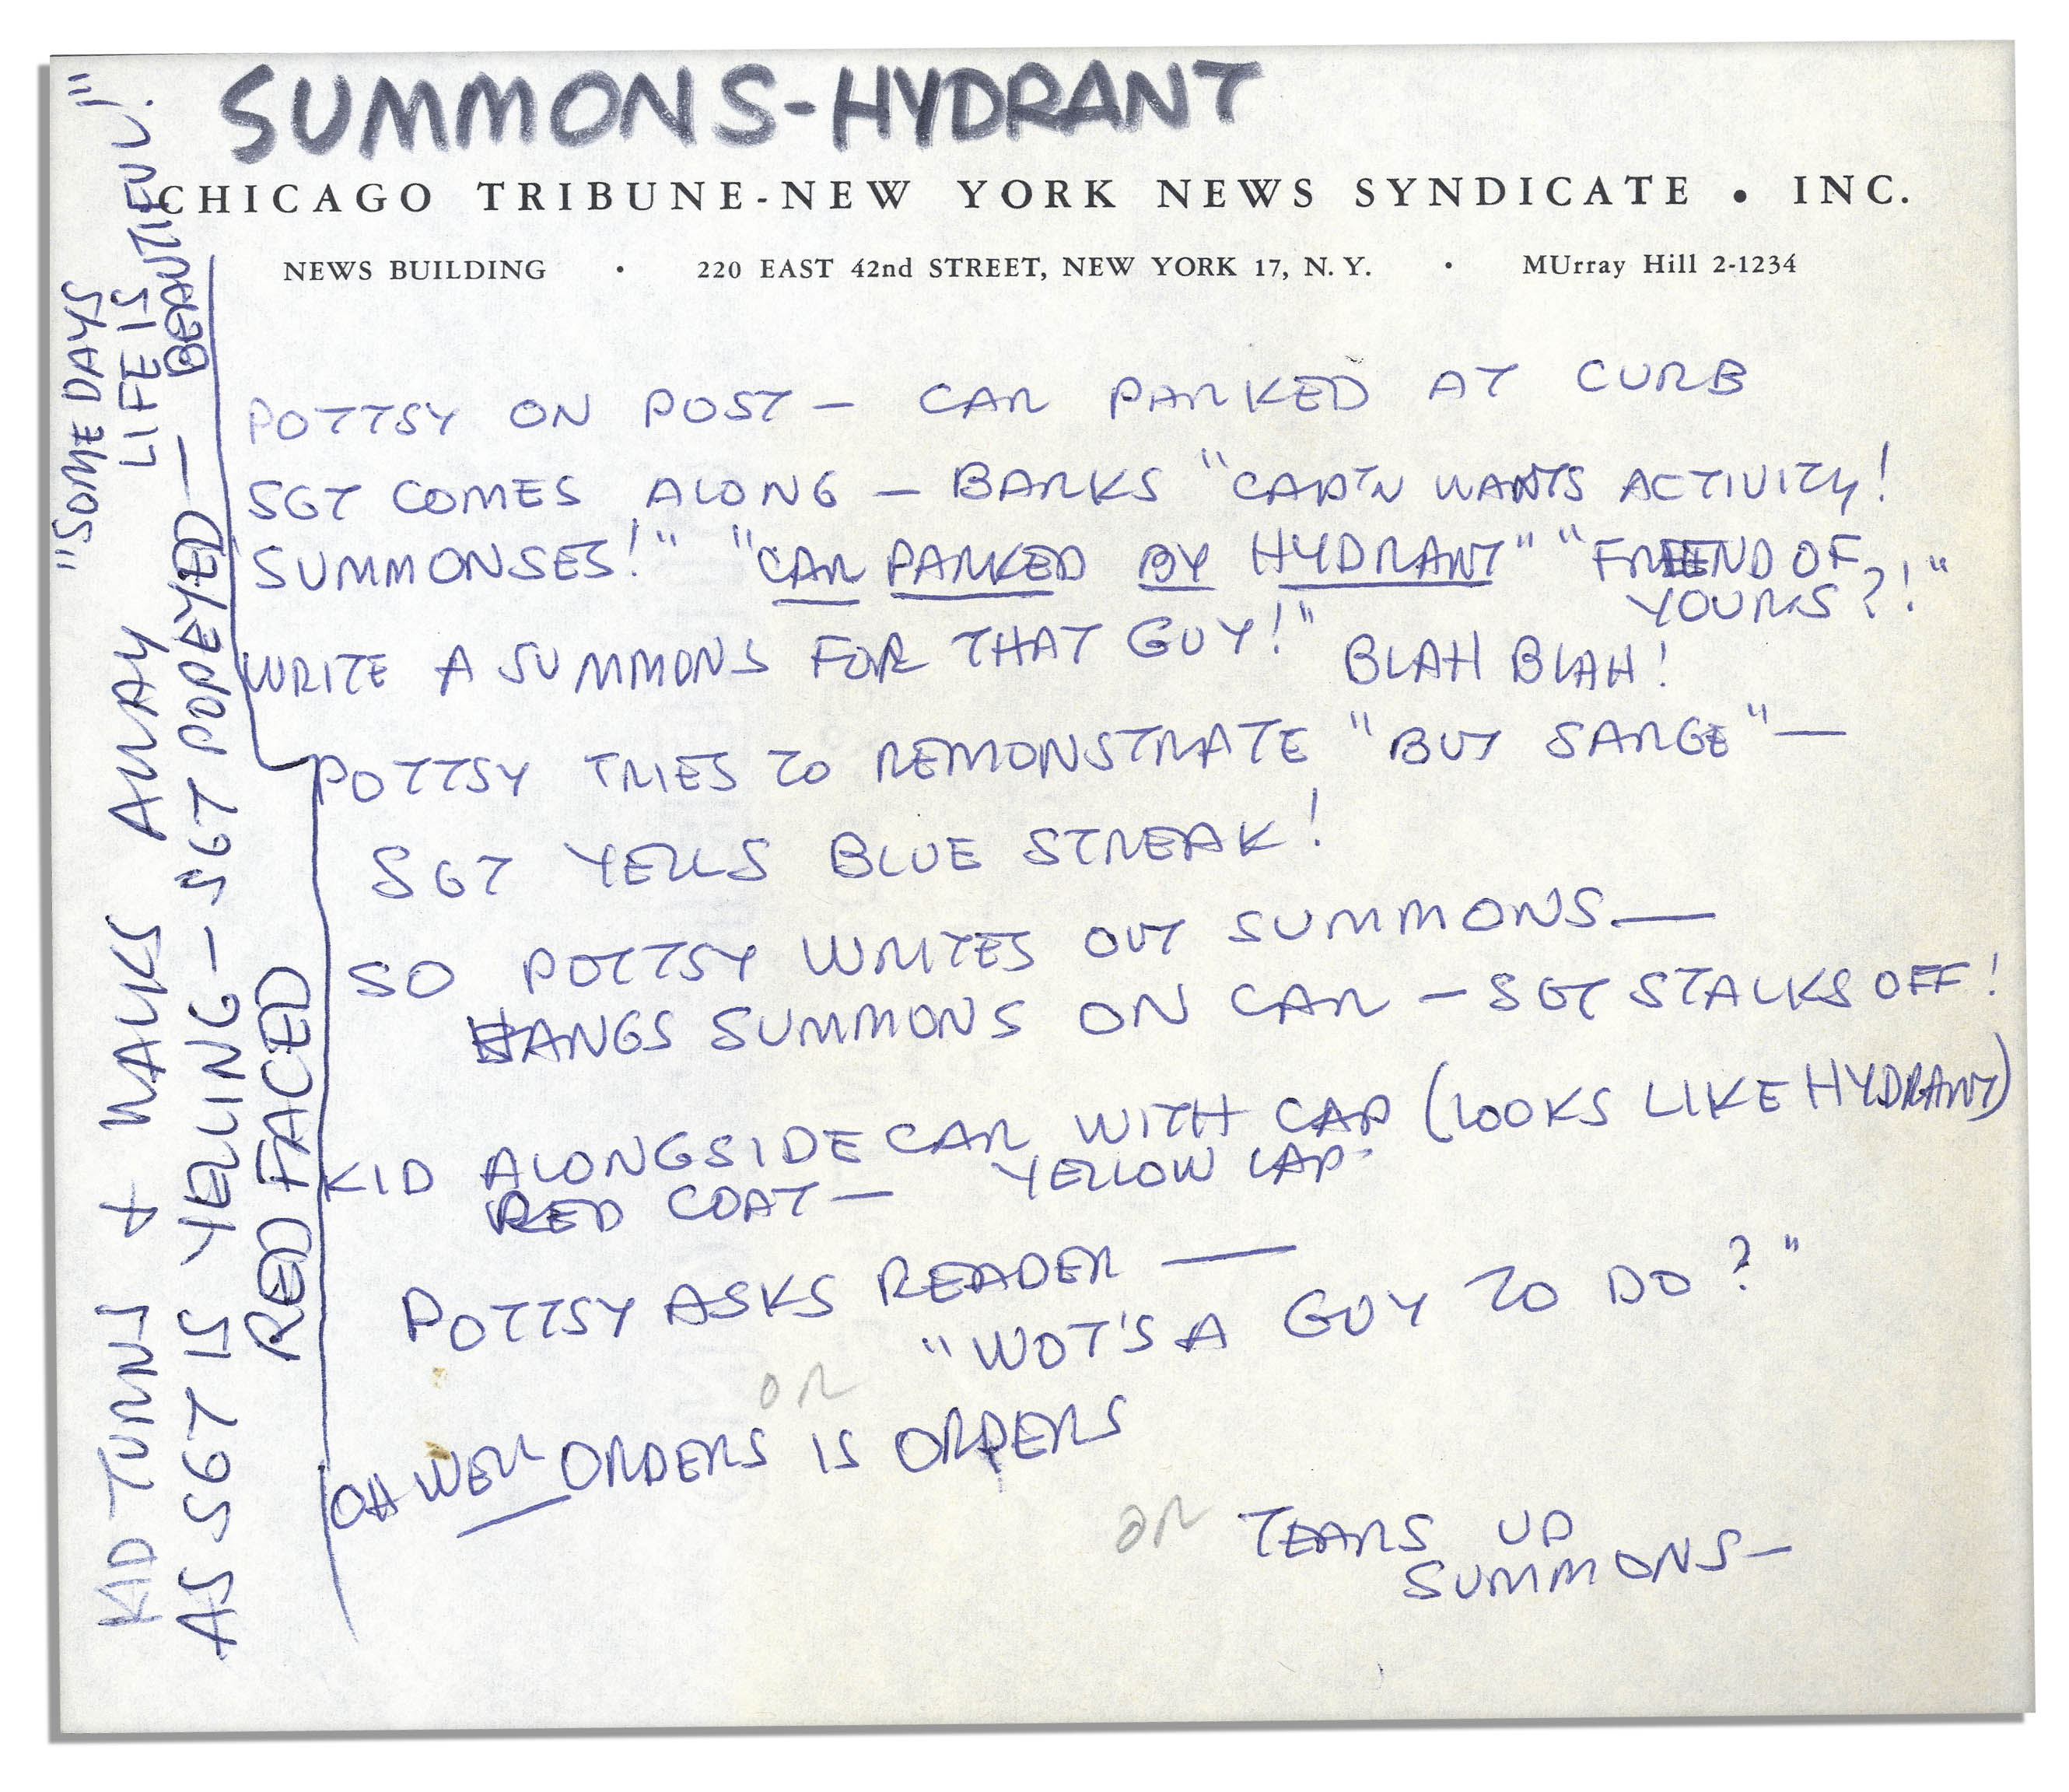 SUMMONS-HYDRANT
CHICAGO TRIBUNE-NEW YORK NEWS SYNDICATE • INC.
NEWS BUILDING • 220 EAST 42nd STREET, NEW YORK 17, N. Y. • MUrray Hill 2-1234
POTTSY ON POST — CAR PARKED AT CURB
SGT COMES ALONG — BARKS "CAP'N WANTS ACTIVITY!
SUMMONSES!" "CAR PARKED BY HYDRANT" "FRIEND OF
YOURS?!"
WRITE A SUMMONS FOR THAT GUY!" BLAH BLAH!
POTTSY TRIES TO REMONSTRATE "BUT SARGE"—
SGT YELLS BLUE STREAK!
SO POTTSY WRITES OUT SUMMONS—
HANGS SUMMONS ON CAR — SGT STALKS OFF!
KID ALONGSIDE CAR WITH CAP (LOOKS LIKE HYDRANT)
RED COAT — YELLOW CAP
POTTSY ASKS READER —
"WOT'S A GUY TO DO?"
OR
OH WELL ORDERS IS ORDERS
OR TEARS UP
SUMMONS—
KID TURNS + WALKS AWAY
AS SGT IS YELLING — SGT POPEYED —
RED FACED
"SOME DAYS
LIFE IS
BEAUTIFUL!"